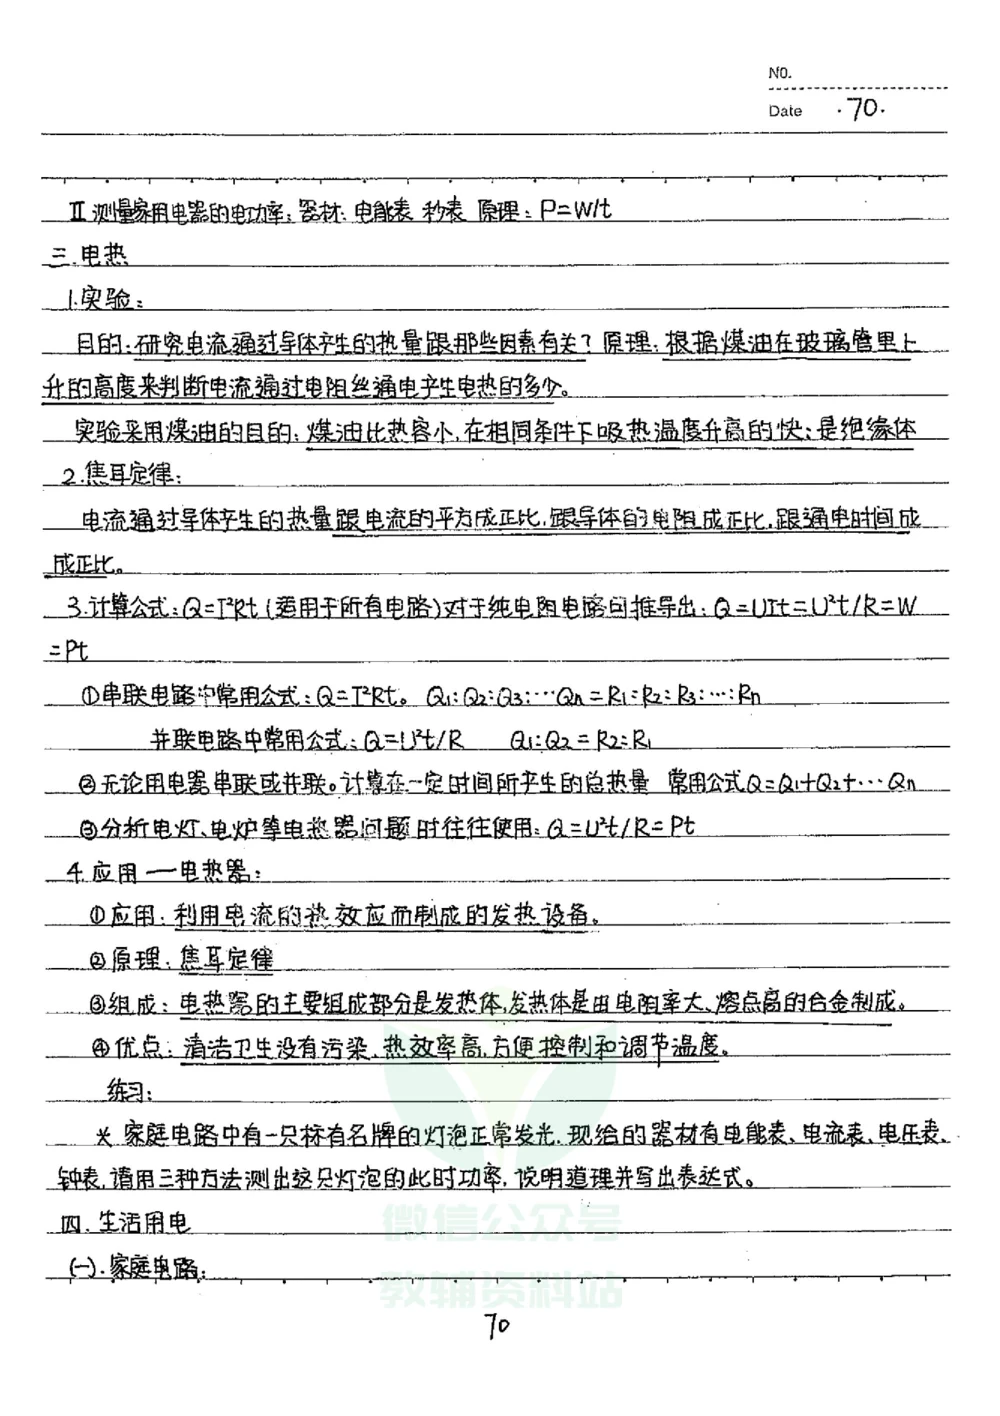 NO.
Date ·70·
Ⅱ测量家用电器的电功率：器材：电能表 秒表 原理：P=W/t
三.电热
1.实验：
目的：研究电流通过导体产生的热量跟那些因素有关？原理：根据煤油在玻璃管里上
升的高度来判断电流通过电阻丝通电产生电热的多少。
实验采用煤油的目的：煤油比热容小，在相同条件下吸热温度升高的快；是绝缘体
2.焦耳定律：
电流通过导体产生的热量跟电流的平方成正比，跟导体的电阻成正比，跟通电时间成
成正比。
3.计算公式：Q=I²Rt（适用于所有电路）对于纯电阻电路可推导出：Q=UIt=U²t/R=W
=Pt
①串联电路中常用公式：Q=I²Rt。Q₁:Q₂:Q₃:…Qn=R₁:R₂:R₃:…:Rn
并联电路中常用公式：Q=U²t/R Q₁:Q₂=R₂:R₁
②无论用电器串联或并联。计算在一定时间所产生的总热量 常用公式Q=Q₁+Q₂+…Qn
③分析电灯、电炉等电热器问题时往往使用：Q=U²t/R=Pt
4.应用—电热器：
①应用：利用电流的热效应而制成的发热设备。
②原理：焦耳定律
③组成：电热器的主要组成部分是发热体，发热体是由电阻率大、熔点高的合金制成。
④优点：清洁卫生没有污染、热效率高、方便控制和调节温度。
练习：
※ 家庭电路中有一只标有名牌的灯泡正常发光，现给的器材有电能表、电流表、电压表、
钟表，请用三种方法测出这只灯泡的此时功率，说明道理并写出表达式。
四．生活用电
(一).家庭电路：
微信公众号
教辅资料站
70